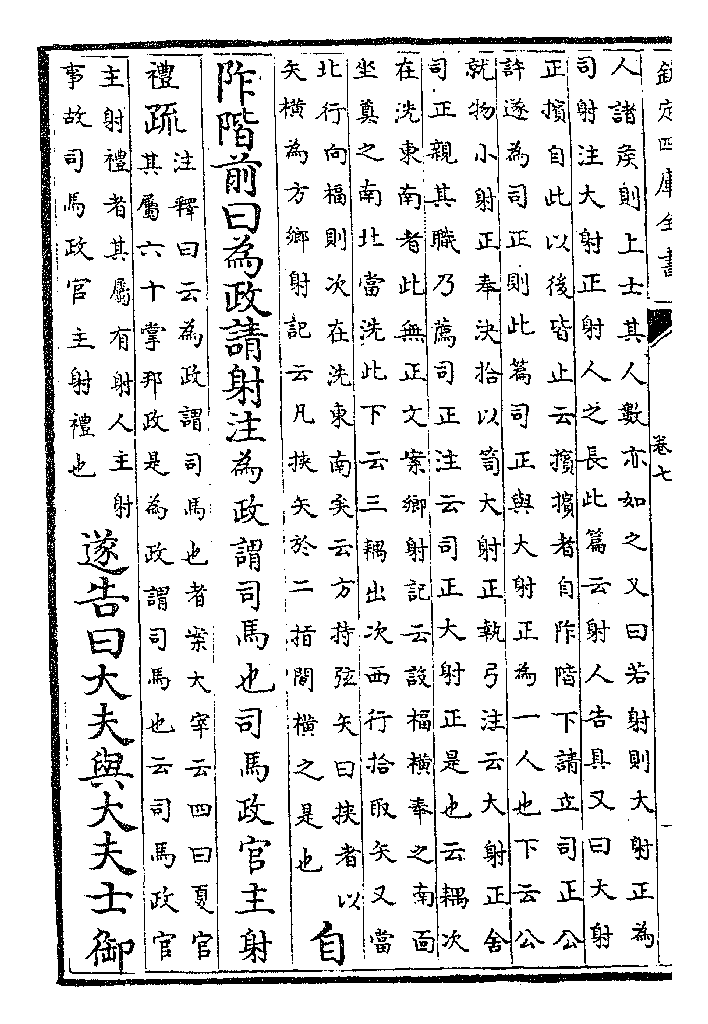 欽定四庫全書
卷七
人諸侯則上士其人數亦如之又曰若射則大射正為
司射注大射正射人之長此篇云射人告具又曰大射
正擯自此以後皆止云擯擯者自阼階下請立司正公
許遂為司正則此篇司正與大射正為一人也下云公
就物小射正奉決拾以笥大射正執弓注云大射正舍
司正親其職乃薦司正注云司正大射正是也云耦次
在洗東南者此無正文案鄉射記云設楅橫奉之南面
坐奠之南北當洗此下云三耦出次西行拾取矢又當
北行向楅則次在洗東南矣云方持弦矢曰挾者以
矢橫為方鄉射記云凡挾矢於二指間橫之是也
自
阼階前曰為政請射注為政謂司馬也司馬政官主射
禮疏
注釋曰云為政謂司馬也者案大宰云四曰夏官
其屬六十掌邦政是為政謂司馬也云司馬政官
主射禮者其屬有射人主射
事故司馬政官主射禮也
遂告曰大夫與大夫士御